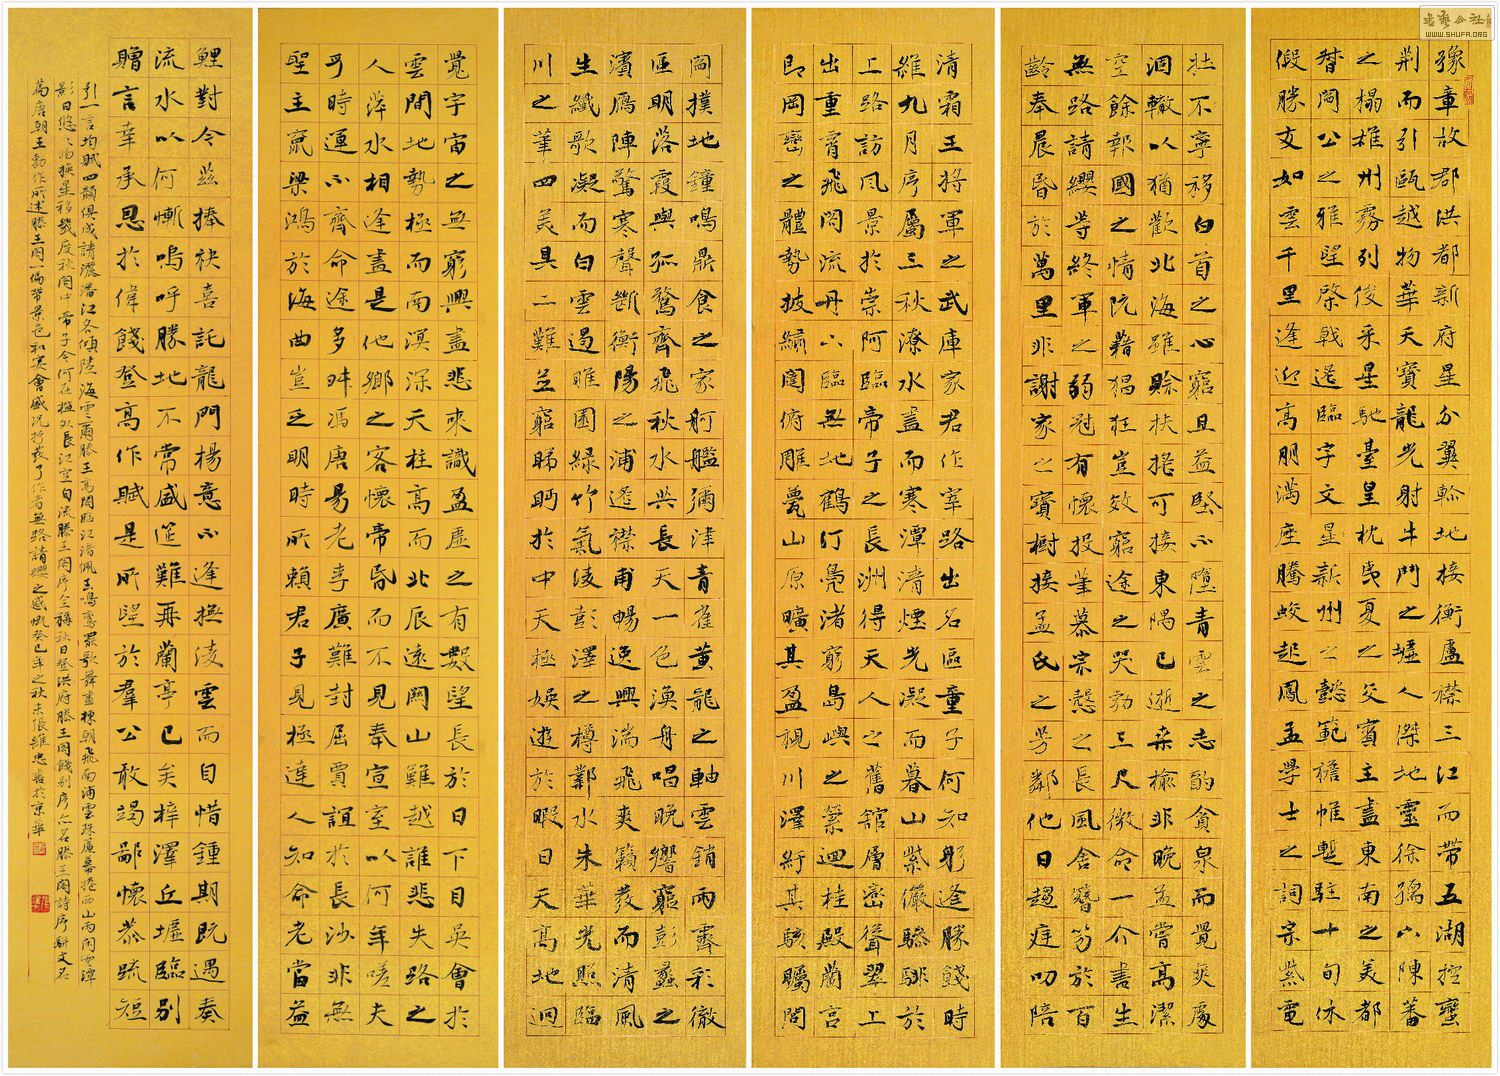 豫章故郡洪都新府星分翼軫地接衡廬襟三江而帶五湖控蠻
荆而引甌越物華天寶龍光射牛鬥之墟人傑地靈徐孺下陳蕃
之榻雄州霧列俊采星馳臺皇枕夷夏之交賓主盡東南之美都
督閻公之雅望棨戟遥臨字文星新州之懿範襜帷暫駐十旬休
假勝友如雲千里逢迎高朋滿座騰蛟起鳳孟學士之詞宗紫電
壯不寧移白首之心窮且益堅不墜青雲之志酌貪泉而覺爽處
涸轍以猶歡北海雖賒扶摇可接東隅已逝桑榆非晚孟嘗高潔
空餘報國之情阮籍猖狂豈效窮途之哭勃三尺微命一介書生
無路請纓等終軍之弱冠有懷投筆慕宗慤之長風舍簪笏於百
齡奉晨昏於萬里非謝家之寶樹接孟氏之芳鄰他日趨庭叨陪
清霜王將軍之武庫家君作宰路出名區童子何知躬逢勝餞時
維九月序屬三秋潦水盡而寒潭清煙光凝而暮山紫儼驂騑於
上路訪風景於崇阿臨帝子之長洲得天人之舊館層巒聳翠上
出重霄飛閣流丹下臨無地鶴汀鳧渚窮島嶼之縈迴桂殿蘭宫
即岡巒之體勢披繡闥俯雕甍山原曠其盈視川澤紆其駭矚閭
閻撲地鐘鳴鼎食之家舸艦彌津青雀黄龍之軸雲銷雨霽彩徹
區明落霞與孤鶩齊飛秋水共長天一色漁舟唱晚響窮彭蠡之
濱鴈陣驚寒聲斷衡陽之浦遥襟甫暢逸興遄飛爽籟發而清風
生纖歌凝而白雲遏睢園緑竹氣凌彭澤之樽鄴水朱華光照臨
川之筆四美具二難並窮睇眄於中天極娱遊於暇日天高地迥
覺宇宙之無窮興盡悲來識盈虚之有數望長於日下目吳會於
雲間地勢極而南溟深天柱高而北辰遠關山難越誰悲失路之
人萍水相逢盡是他鄉之客懷帝昏而不見奉宣室以何年嗟夫
乎時運不齊命途多舛馮唐易老李廣難封屈賈誼於長沙非無
聖主竄梁鴻於海曲豈乏明時所賴君子見極達人知命老當益
鯉對今兹捧袂喜託龍門楊意不逢撫凌雲而自惜鍾期既遇奏
流水以何慚嗚呼勝地不常盛筵難再蘭亭已矣梓澤丘墟臨别
贈言幸承恩於偉餞登高作賦是所望於羣公敢竭鄙懷恭疏短
引一言均賦四韻俱成請灑潘江各傾陸海云爾滕王高閣臨江渚佩玉鳴鸞罷歌舞畫棟朝飛南浦雲珠簾暮捲西山雨閒雲潭
影日悠悠物換星移幾度秋閣中帝子今何在檻外長江空自流滕王閣序全稱秋日登洪府滕王閣餞别序亦名滕王閣詩序駢文名
篇唐朝王勃作所述滕王閣一偏帶景色和宴會盛況抒發了作者無路請纓之感慨癸巳年之秋末張維忠書於京華
WWW.SHUFA.ORG